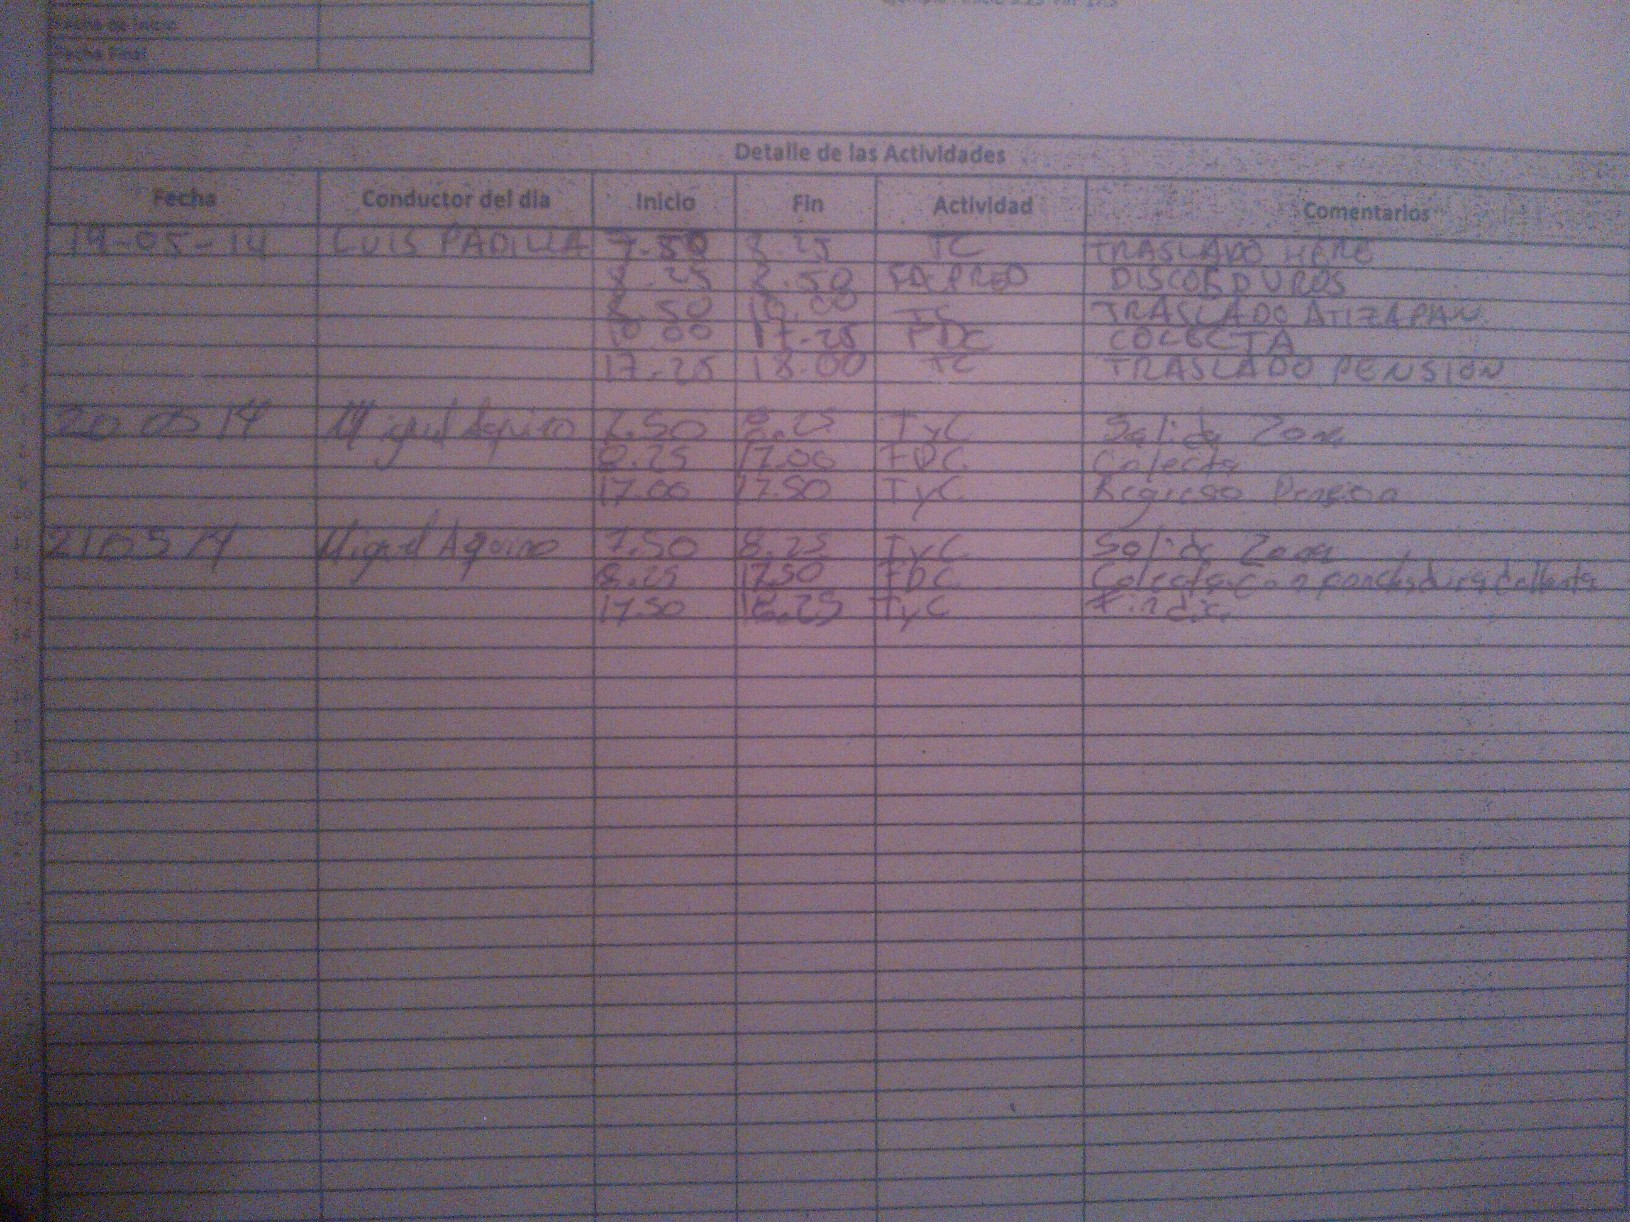 Fecha de Inicio
Fecha Final
Detalle de las Actividades
Fecha Conductor del dia Inicio Fin Actividad Comentarios
19-05-14 LUIS PADILLA 7.50 8.25 TC TRASLADO HERE
8.25 8.50 DISCOS DUROS
8.50 10.00 TC TRASLADO ATIZAPAN
10.00 17.25 FDC COLECTA
17.25 18.00 TC TRASLADO PENSION
20 05 14 Miguel Aquino 7.50 8.25 TyC Salida Zona
8.25 17.00 FDC Colecta
17.00 17.50 TyC Regreso Pension
21 05 14 Miguel Aquino 7.50 8.25 TyC Salida Zona
8.25 17.50 FDC Colecta con ponchadura de llanta
17.50 18.25 TyC Fin dia